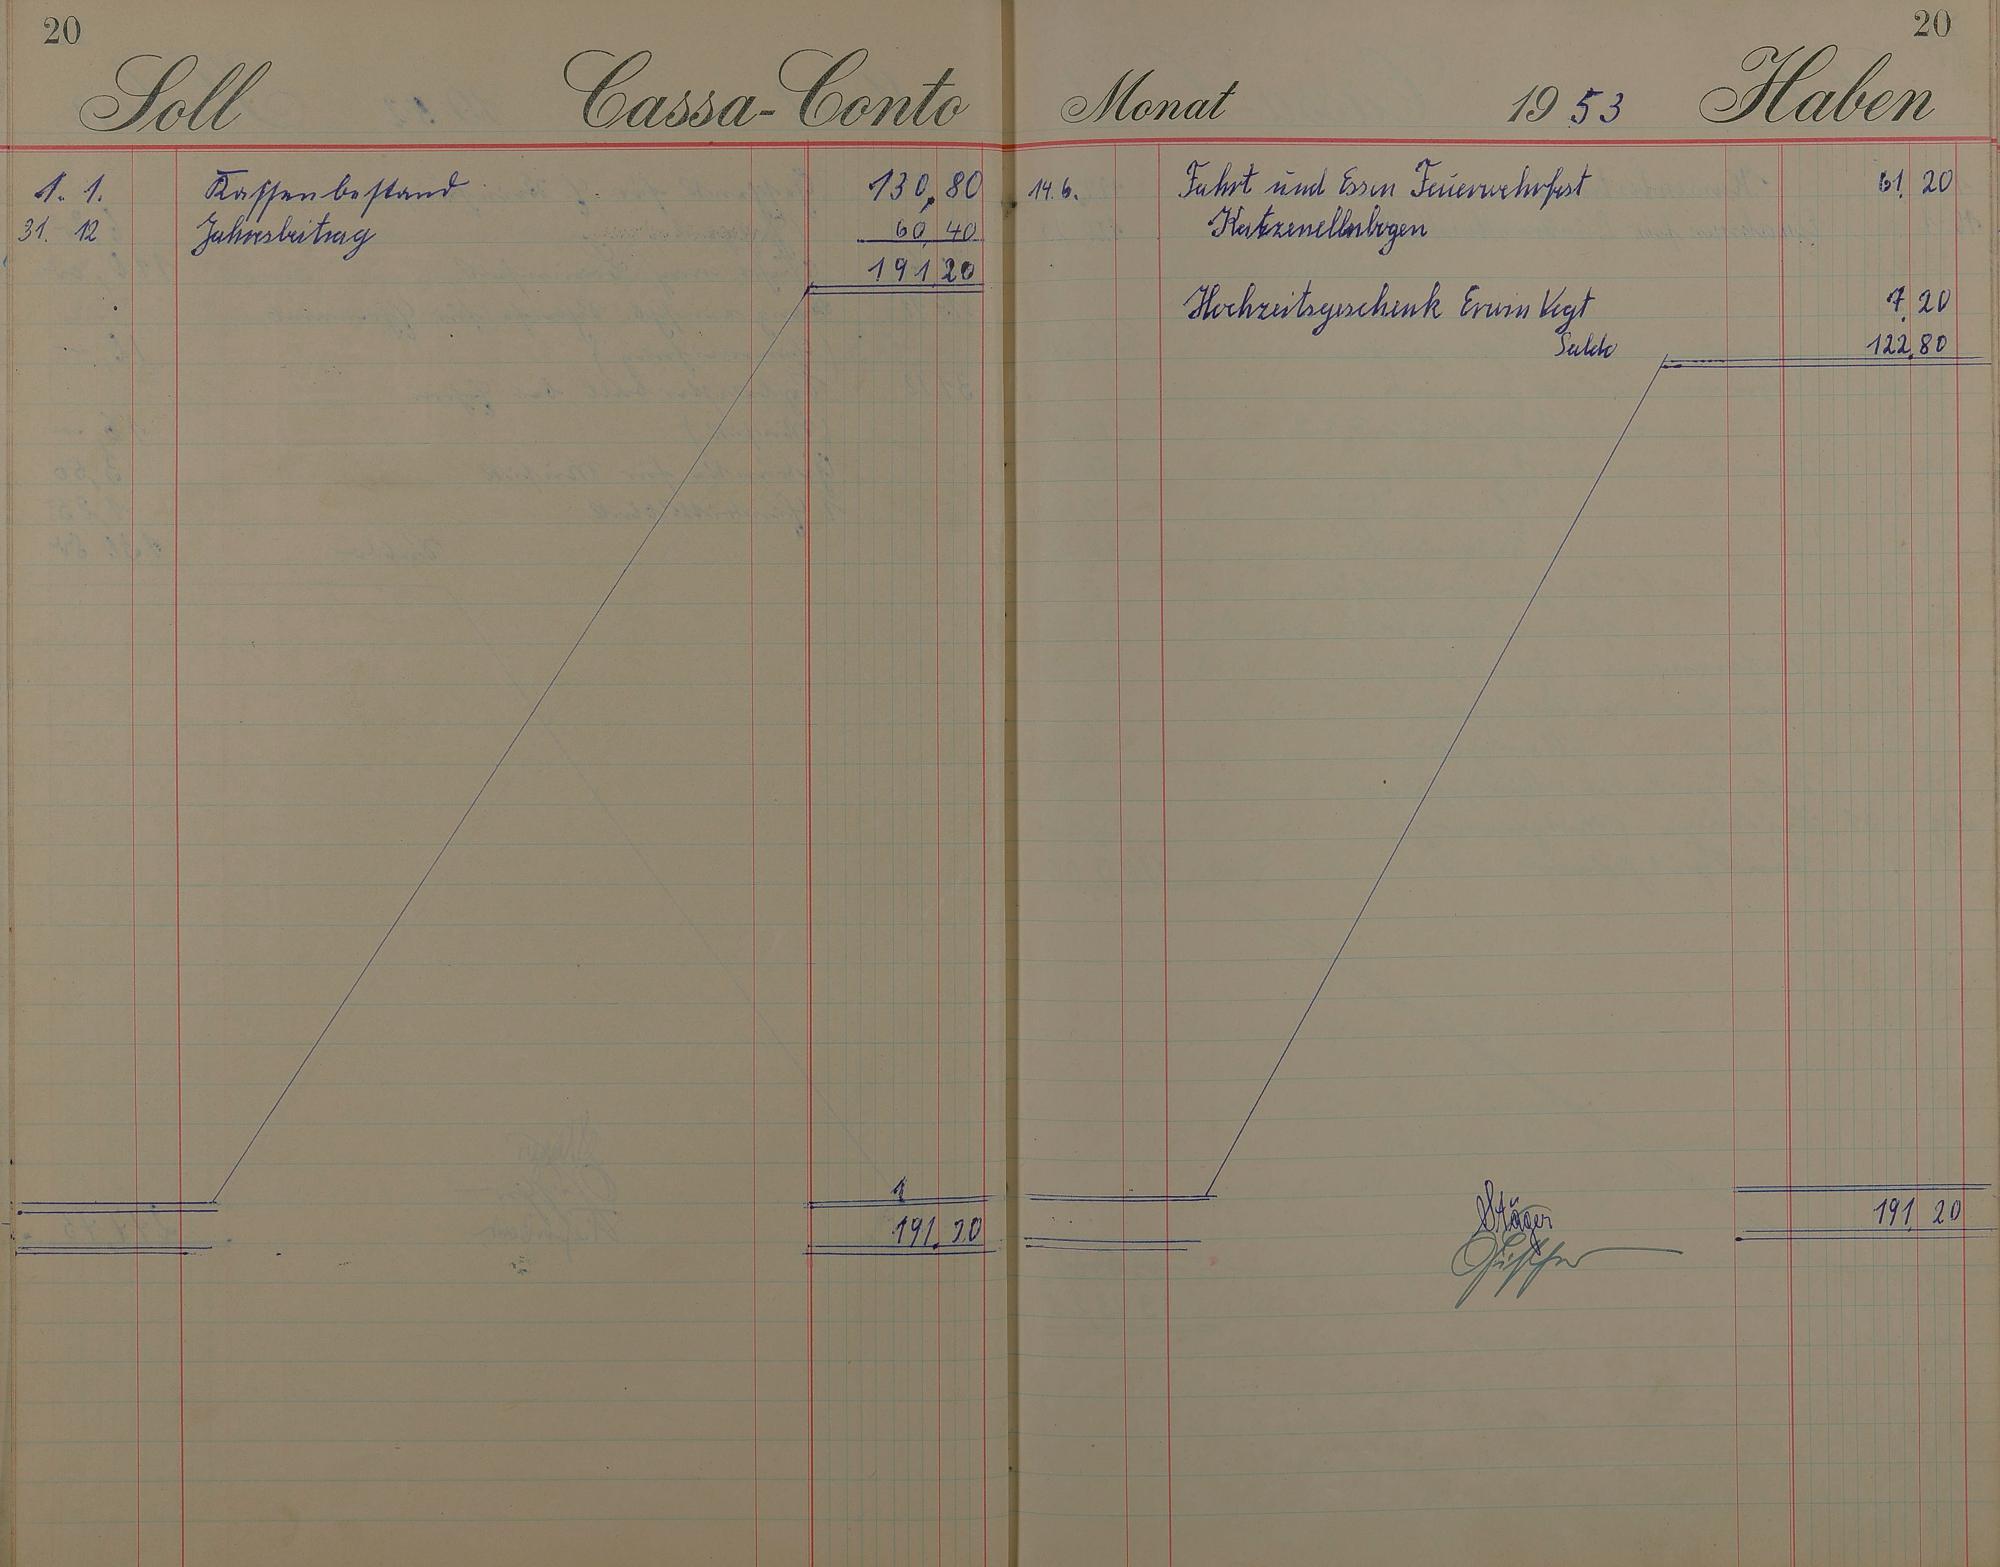 20
Soll Cassa-Conto
1. 1. Kassenbestand 130,80
31. 12 Jahresbeitrag 60,40
191,20
191,20
20
Monat 1953 Haben
14.6. Fahrt und Essen Feuerwehrfest 61,20
Katzenellnbogen
Hochzeitsgeschenk Erwin Vogt 7,20
Saldo 122,80
191,20
Stäger